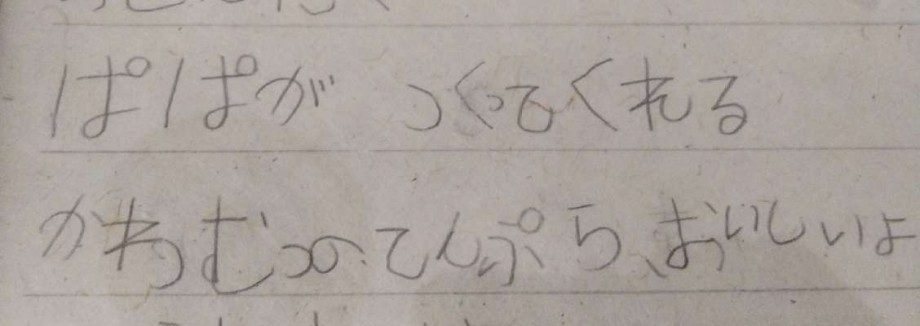 ぱぱが つくってくれる
かわむつの、てんぷら、おいしいよ